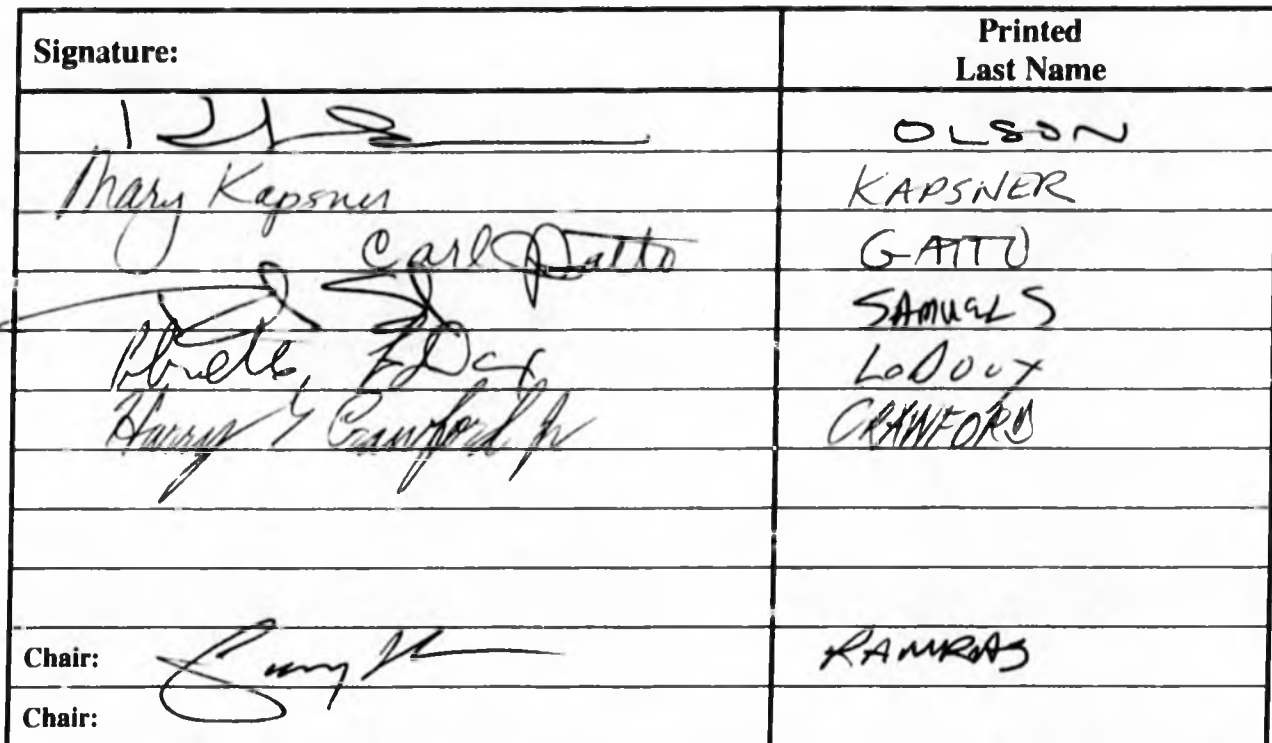 Signature: Printed Last Name
OLSON
Mary Kapsner KAPSNER
Carl Gatto GATTO
SAMUELS
LoDoux
Harry Crawford Jr CRAWFORD
Chair: RAMRAS
Chair: